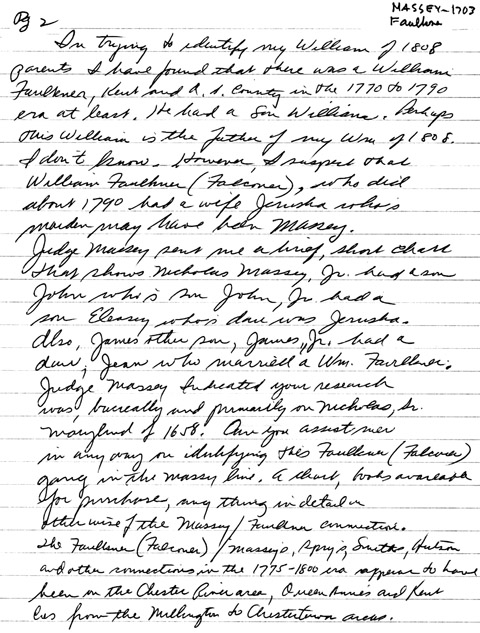 Pg 2
MASSEY-1703
Faulkner
In trying to identify my William of 1808
parents I have found that there was a William
Faulkner, Kent and Q. A. County in the 1770 to 1790
era at least. He had a Son William. Perhaps
this William is the father of my Wm. of 1808.
I don't know. However, I suspect that
William Faulkner (Falconer), who died
about 1790 had a wife Jerusha who's
maiden may have been Massey.
Judge Massey sent me a brief, short chart
that shows Nicholas Massey, Jr. had a son
John who's son John, Jr. had a
son Eleasey who's dau was Jerusha.
Also, James other son, James, Jr. had a
dau, Jean who married a Wm. Faulkner.
Judge Massey indicated your research
was, basically and primarily on Nicholas, Sr.
Maryland of 1658. Can you assist me
in any way on identifying this Faulkner (Falconer)
gang in the Massey line. A chart, books available
for purchase, any thing in detail or
other wise of the Massey/Faulkner connection.
The Faulkner (Falconer)/Massey's, Spry's, Smiths, Hutson
and other connections in the 1775-1800 era appear to have
been in the Chester River area, Queen Annes and Kent
Cos from the Millington to Chestertown areas.